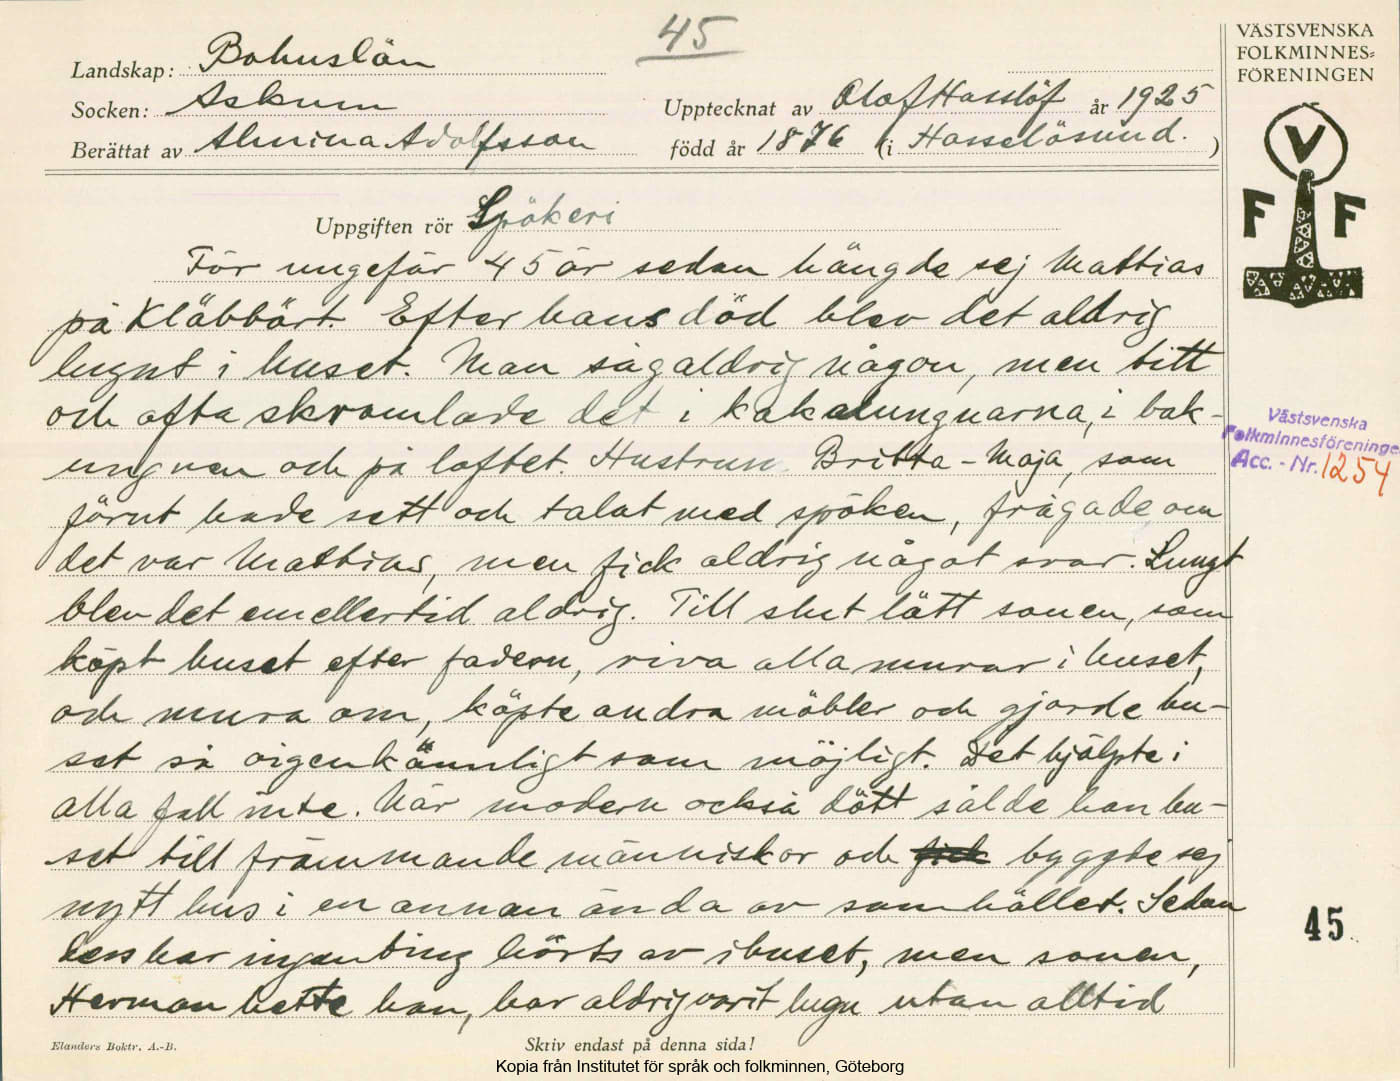 45
VÄSTSVENSKA
FOLKMINNES=
FÖRENINGEN
Landskap: Bohuslän
Socken: Askum
Upptecknat av Olof Hasslöf år 1925
Berättat av Almina Adolfsson
född år 1876 (i Hasselösund.)
V
F F
Uppgiften rör Spökeri
För ungefär 45 år sedan hängde sej Mattias
på Kläbbärt. Efter hans död blev det aldrig
lugnt i huset. Man såg aldrig någon, men titt
och ofta skramlade det i kakelungnarna, i bak-
ungnen och på loftet. Hustrun Britta-Maja, som
förut hade sett och talat med spöken, frågade om
det var Mattias, men fick aldrig något svar. Lungt
blev det emellertid aldrig. Till slut lätt sonen, som
köpt huset efter fadern, riva alla murar i huset,
och mura om, köpte andra möbler och gjorde hu-
set så oigenkännligt som möjligt. Det hjälpte i
alla fall inte. När modern också dött sålde han hu-
set till främmande människor och fick byggde sej
nytt hus i en annan ända av samhället. Sedan
dess har ingenting hörts av i huset, men sonen,
Herman hette han, har aldrig varit lugn utan alltid
Västsvenska
Folkminnesföreningen
Acc. - Nr. 1254
45
Elanders Boktr. A.-B.
Skriv endast på denna sida!
Kopia från Institutet för språk och folkminnen, Göteborg